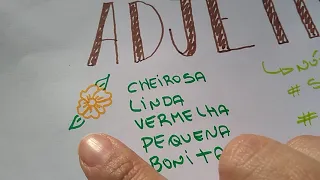 ADJETI
CHEIROSA
LINDA
VERMELHA
PEQUENA
BONITA